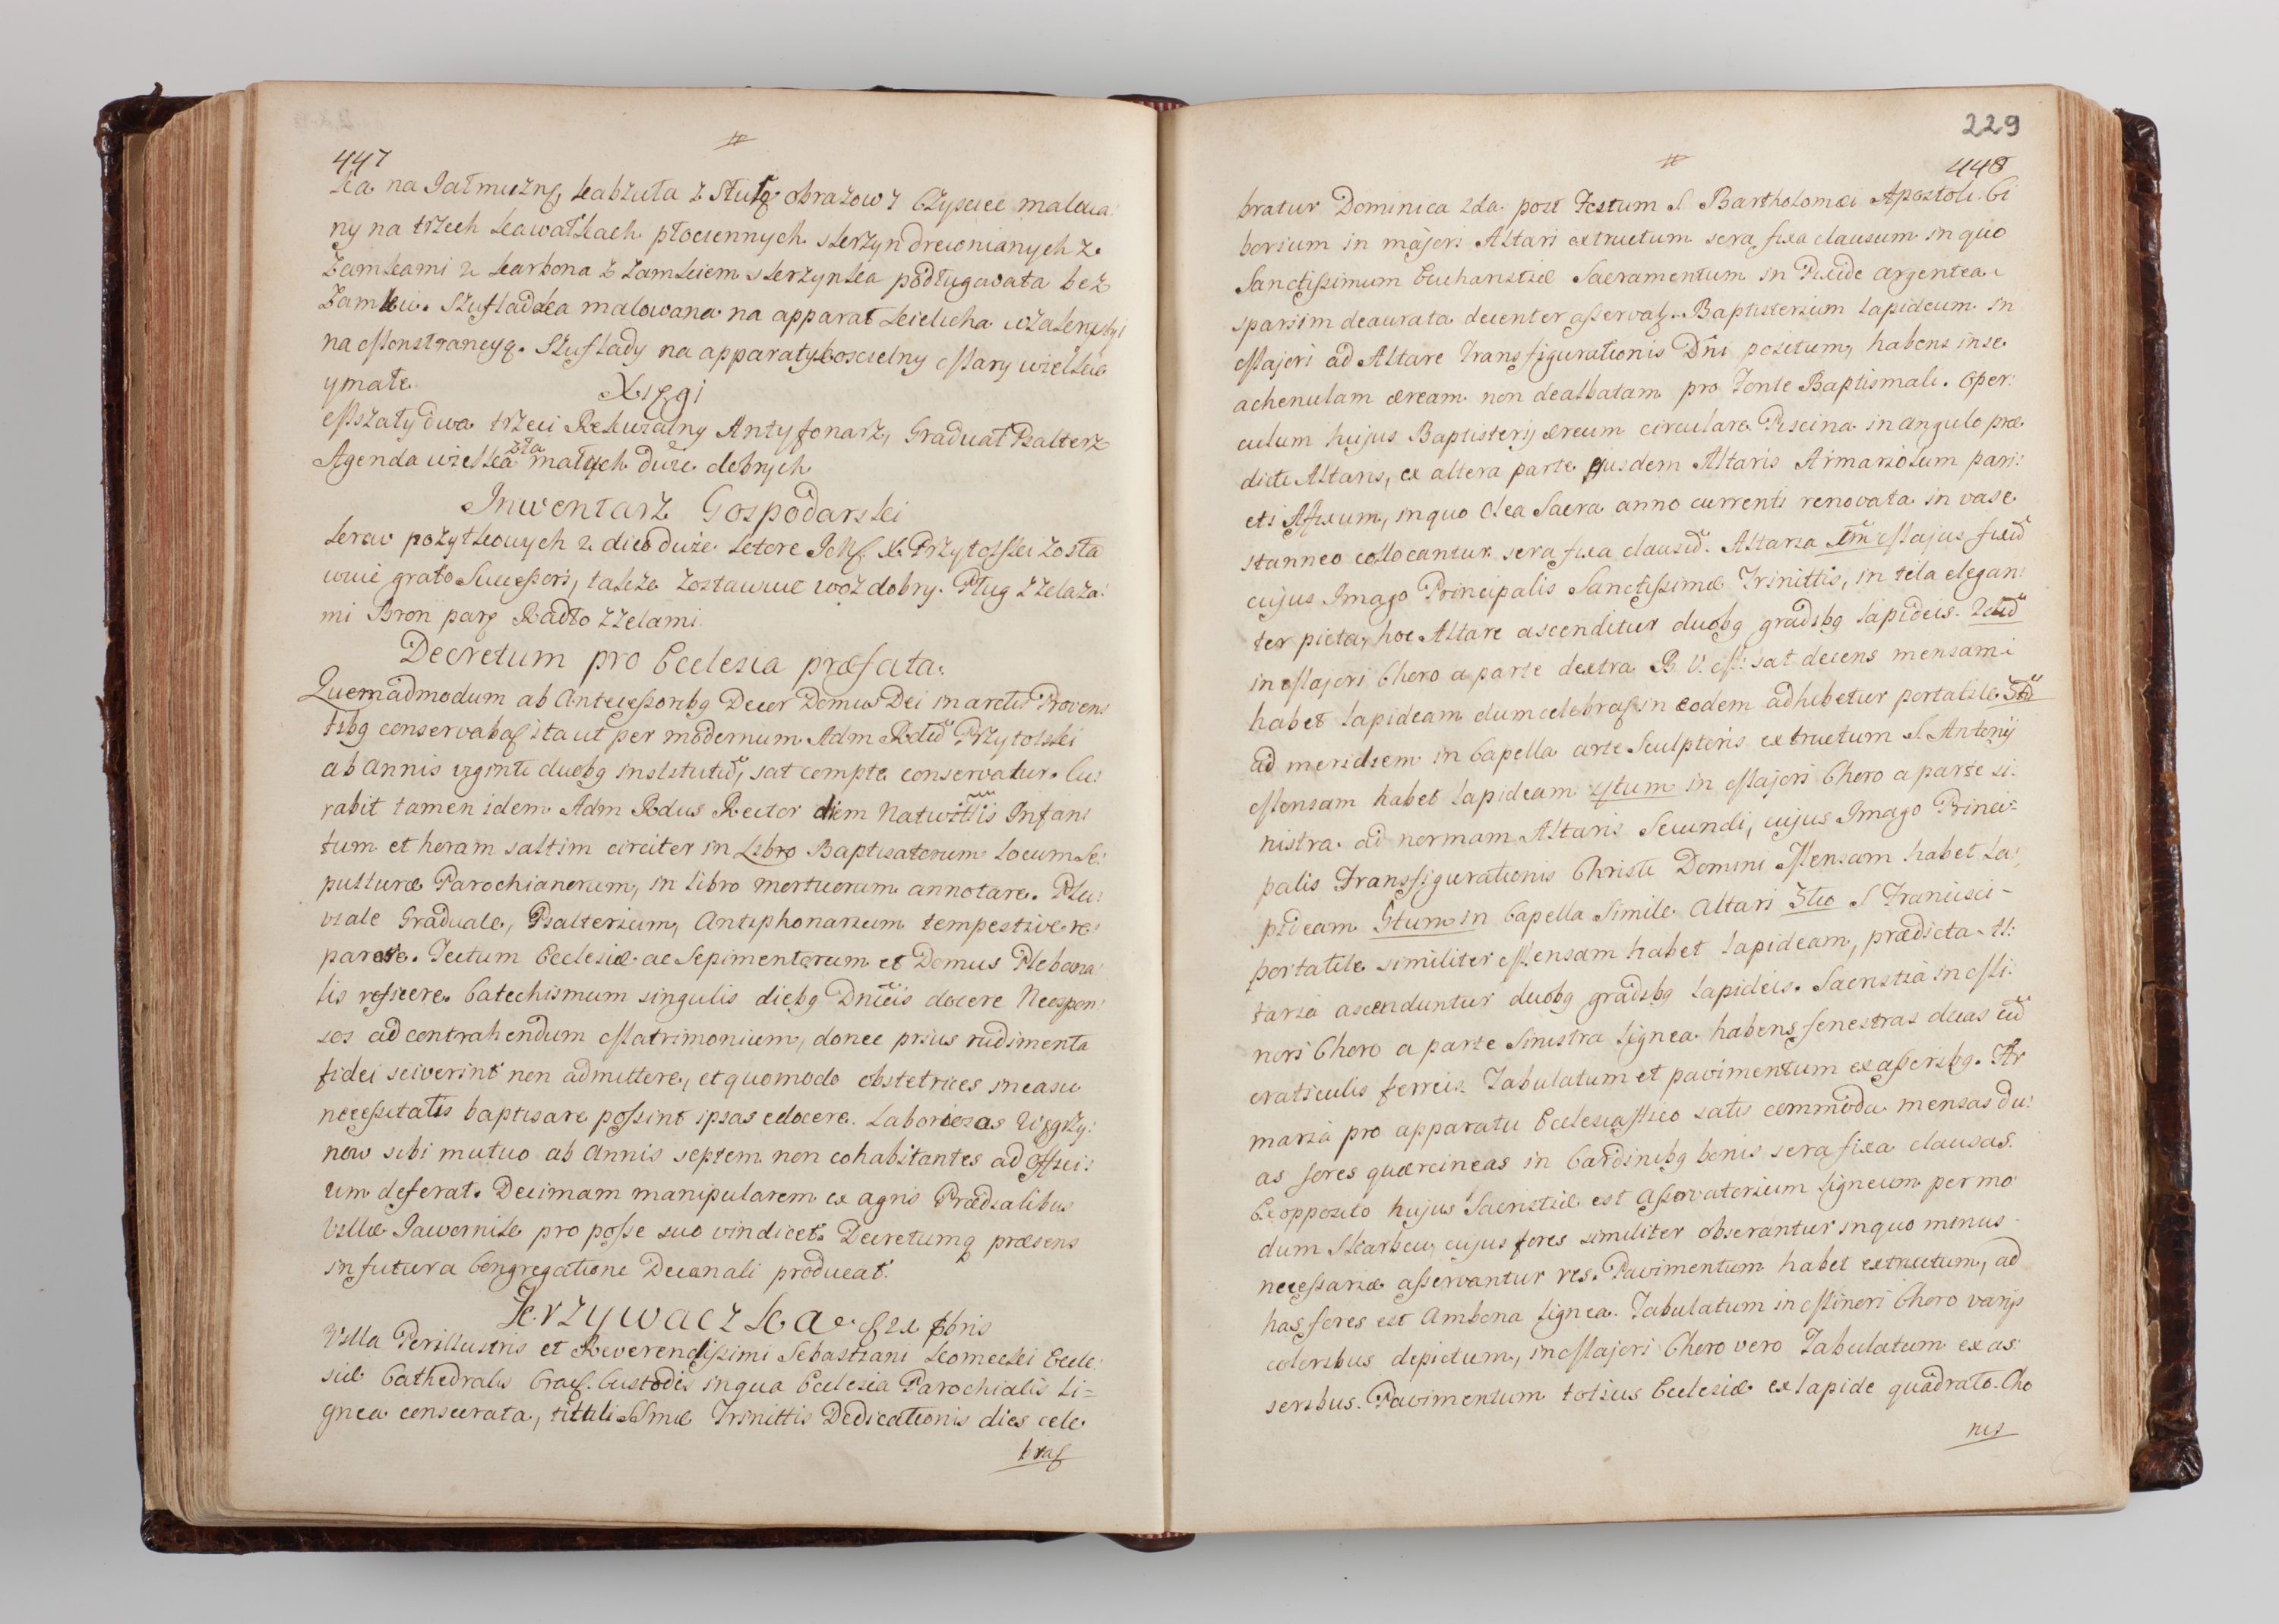 447
ka na Jałmużnę, kapżuła z Stułę obrazow 7 Czyściec malowa:
ny na trzech kawałkach płociennych skrzyn drewnianych z
Zamkami 2 karbona z zamkiem skrzynka podługawata bez
Zamku. Szufladka malowana na apparat kielicha wzakrystyi
na Monstrancyą. Szuflady na apparaty koscielny Mary wielkie
y małe
Xięgi
Mszały dwa trzeci Rekuialny Antyfonarz, Graduał Psalterz
Agenda wielka małych duże dobrych
Inwentarz Gospodarski
krow pożytkowych 2 die duże ktore Jeḿ X. Przytolski zosta
wuie grato Successori, także zostawuie woz dobry. Pług z zelaza:
mi Bron parę Radło z zelami
Decretum pro Ecclesia præfata.
Quemadmodum ab Antecessoribg Decor Domus Dei in arctis Proven:
tibg conservabaʃ ita ut per modernum Adm Rdũ Przytolski
ab Annis viginti duobg institutũ, sat compte conservatur. Cu:
rabit tamen idem Adm Rdus Rector diem Nativittis Infan:
tum et horam saltim circiter in Libro Baptisatorum locum Se:
pulturæ Parochianorum, in libro mortuorum annotare. Plu:
viale Graduale, Psalterium, Antiphonarium tempestive re:
parare. Tectum Ecclesiæ ac Sepimentorum et Domus Plebana:
lis reficere. Catechismum singulis diebg Dnicis docere Neospon:
sos ad contrahendum Matrimonium, donec prius rudimenta
fidei sciverint non admittere, et quomodo obstetrices in casu
necessitatis baptisare possint ipsas edocere. Laboriosas Węgrzy:
now sibi mutuo ab Annis septem non cohabitantes ad Offici:
um deferat. Decimam manipularem ex agris Prædialibus
Villæ Jawornik pro posse suo vindicet. Decretumq præsens
in futura Congregatione Decanali producat.
Krzywaczka
Villa Perillustris et Reverendissimi Sebastiani Komecki Eccle:
siæ Cathedralis Crac. Custodis in qua Ecclesia Parochialis li=
gnea consecrata, tituli SSmæ Trinittis Dedicationis dies cele
braʃ
229
448
bratur Dominica 2da post Festum S. Bartholomæi Apostoli. Ci
borium in majori Altari extructum sera fixa clausum in quo
Sanctissimum Eucharistiæ Sacramentum in Pixide argentea
sparsim deaurata decenter asservaʃ. Baptisterium lapideum in
Majori ad Altare Transfigurationis Dni positum, habens in se
achenulam æream non dealbatam pro Fonte Baptismali. Oper:
culum hujus Baptisterij æreum circulare Piscina in angulo præ
dicti Altaris, ex altera parte ejusdem Altaris Armariolum pari:
eti Affixum, in quo Olea Sacra anno currenti renovata in vase
stanneo collocantur sera fixa clausũ. Altaria Im Majus fixũ
cujus Imago Principalis Sanctissimæ Trinittis, in tela elegan:
ter picta, hoc Altare ascenditur duobg gradibg lapideis. 2dũ
in Majori Choro a parte dextra B. V. M. sat decens mensam
habet lapideam dum celebraʃ in eodem adhibetur portatile 3tiũ
ad meridiem in Capella arte Sculptoris extructum S. Antonij
Mensam habet lapideam 4tum in Majori Choro a parte si:
nistra ad normam Altaris Secundi, cujus Imago Princi=
palis Transfigurationis Christi Domini Mensam habet La:
pideam 5tum in Capella Simile Altari 3tio S Francisci -
portatile similiter Mensam habet lapideam, prædicta Al:
taria ascenduntur duobg gradibg lapideis. Sacristia in Mi:
nori Choro a parte Sinistra lignea habens fenestras duas cũ
craticulis ferreis. Tabulatum et pavimentum ex asseribg. Ar
maria pro apparatu Ecclesiastico satis commoda mensas du:
as fores quærcineas in Cardinibg bonis sera fixa clausas.
Ex opposito hujus Sacristiæ est Asservatorium ligneum per mo
dum Skarbcu, cujus fores similiter obserantur in quo minus
necessariæ asservantur res. Pavimentum habet extructum, ad
has fores est Ambona lignea. Tabulatum in Minori Choro varijs
coloribus depictum, in Majori Choro vero Tabulatum ex as:
seribus. Pavimentum totius Ecclesiæ ex lapide quadrato. Cho
rus